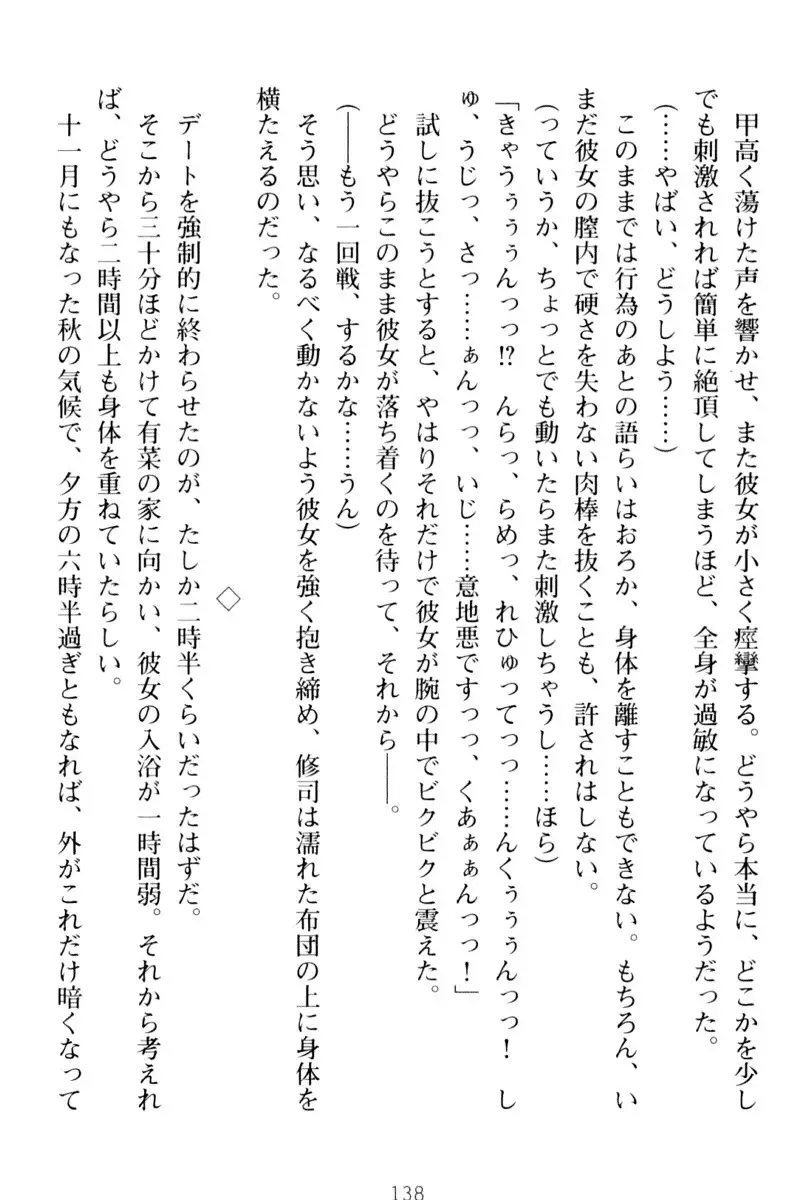 甲高く蕩けた声を響かせ、また彼女が小さく痙攣する。どうやら本当に、どこかを少し
でも刺激されれば簡単に絶頂してしまうほど、全身が過敏になっているようだった。
(……やばい、どうしよう……)
このままでは行為のあとの語らいはおろか、身体を離すこともできない。もちろん、い
まだ彼女の膣内で硬さを失わない肉棒を抜くことも、許されはしない。
(っていうか、ちょっとでも動いたらまた刺激しちゃうし……ほら)
「きゃうぅぅんっっ!? んらっ、らめっ、れひゅってっっ……んくぅぅぅんっっ! し
ゅ、うじっ、さっ……ぁんっっ、いじ……意地悪ですっっ、くあぁぁんっっ!」
試しに抜こうとすると、やはりそれだけで彼女が腕の中でビクビクと震えた。
どうやらこのまま彼女が落ち着くのを待って、それから――。
(――もう一回戦、するかな……うん)
そう思い、なるべく動かないよう彼女を強く抱き締め、修司は濡れた布団の上に身体を
横たえるのだった。
◇
デートを強制的に終わらせたのが、たしか二時半くらいだったはずだ。
そこから三十分ほどかけて有菜の家に向かい、彼女の入浴が一時間弱。それから考えれ
ば、どうやら二時間以上も身体を重ねていたらしい。
十一月にもなった秋の気候で、夕方の六時半過ぎともなれば、外がこれだけ暗くなって
138